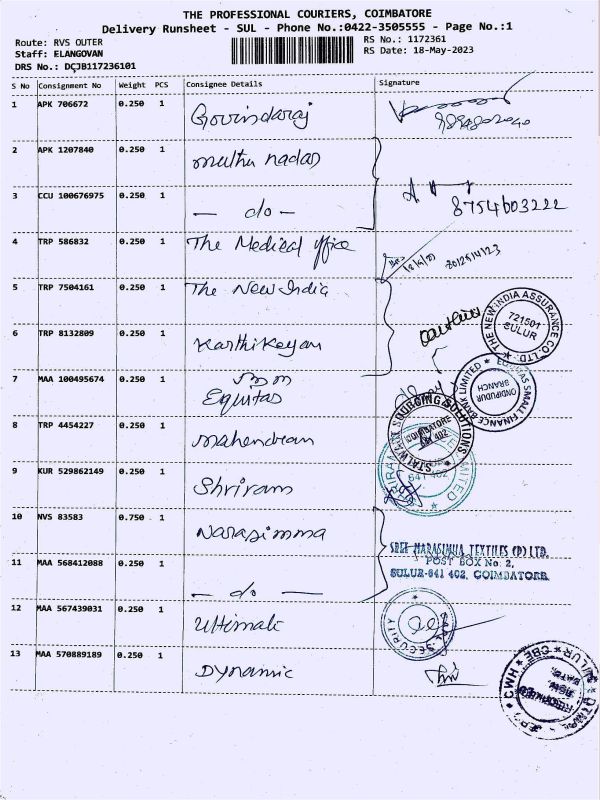 THE PROFESSIONAL COURIERS, COIMBATORE
Delivery Runsheet - SUL - Phone No.:0422-3505555 - Page No.:1
Route: RVS OUTER
RS No.: 1172361
Staff: ELANGOVAN
RS Date: 18-May-2023
DRS No.: DCJB117236101
S No Consignment No Weight PCS Consignee Details Signature
1 APK 706672 0.250 1 Govindaraj
2 APK 1207840 0.250 1 muthu nadar
3 CCU 100676975 0.250 1 — do — 8754603222
4 TRP 586832 0.250 1 The Medical office
5 TRP 7504161 0.250 1 The New India
THE NEW INDIA ASSURANCE CO. LTD. 721501 SULUR
6 TRP 8132809 0.250 1 Karthikeyan
7 MAA 100495674 0.250 1 Equitas
EQUITAS SMALL FINANCE BANK LIMITED ONDIPUDUR BRANCH
8 TRP 4454227 0.250 1 Mahendran
STALWART SOURCING SOLUTIONS COIMBATORE 641 402
9 KUR 529862149 0.250 1 Shriram
10 NVS 83583 0.750 1 Narasimma
SREE NARASIMHA TEXTILES (P) LTD.
POST BOX No. 2,
SULUR-641 402, COIMBATORE.
11 MAA 568412088 0.250 1 — do —
12 MAA 567439031 0.250 1 Ultimate
SECURITY
13 MAA 570889189 0.250 1 Dynamic
SULUR-CBE